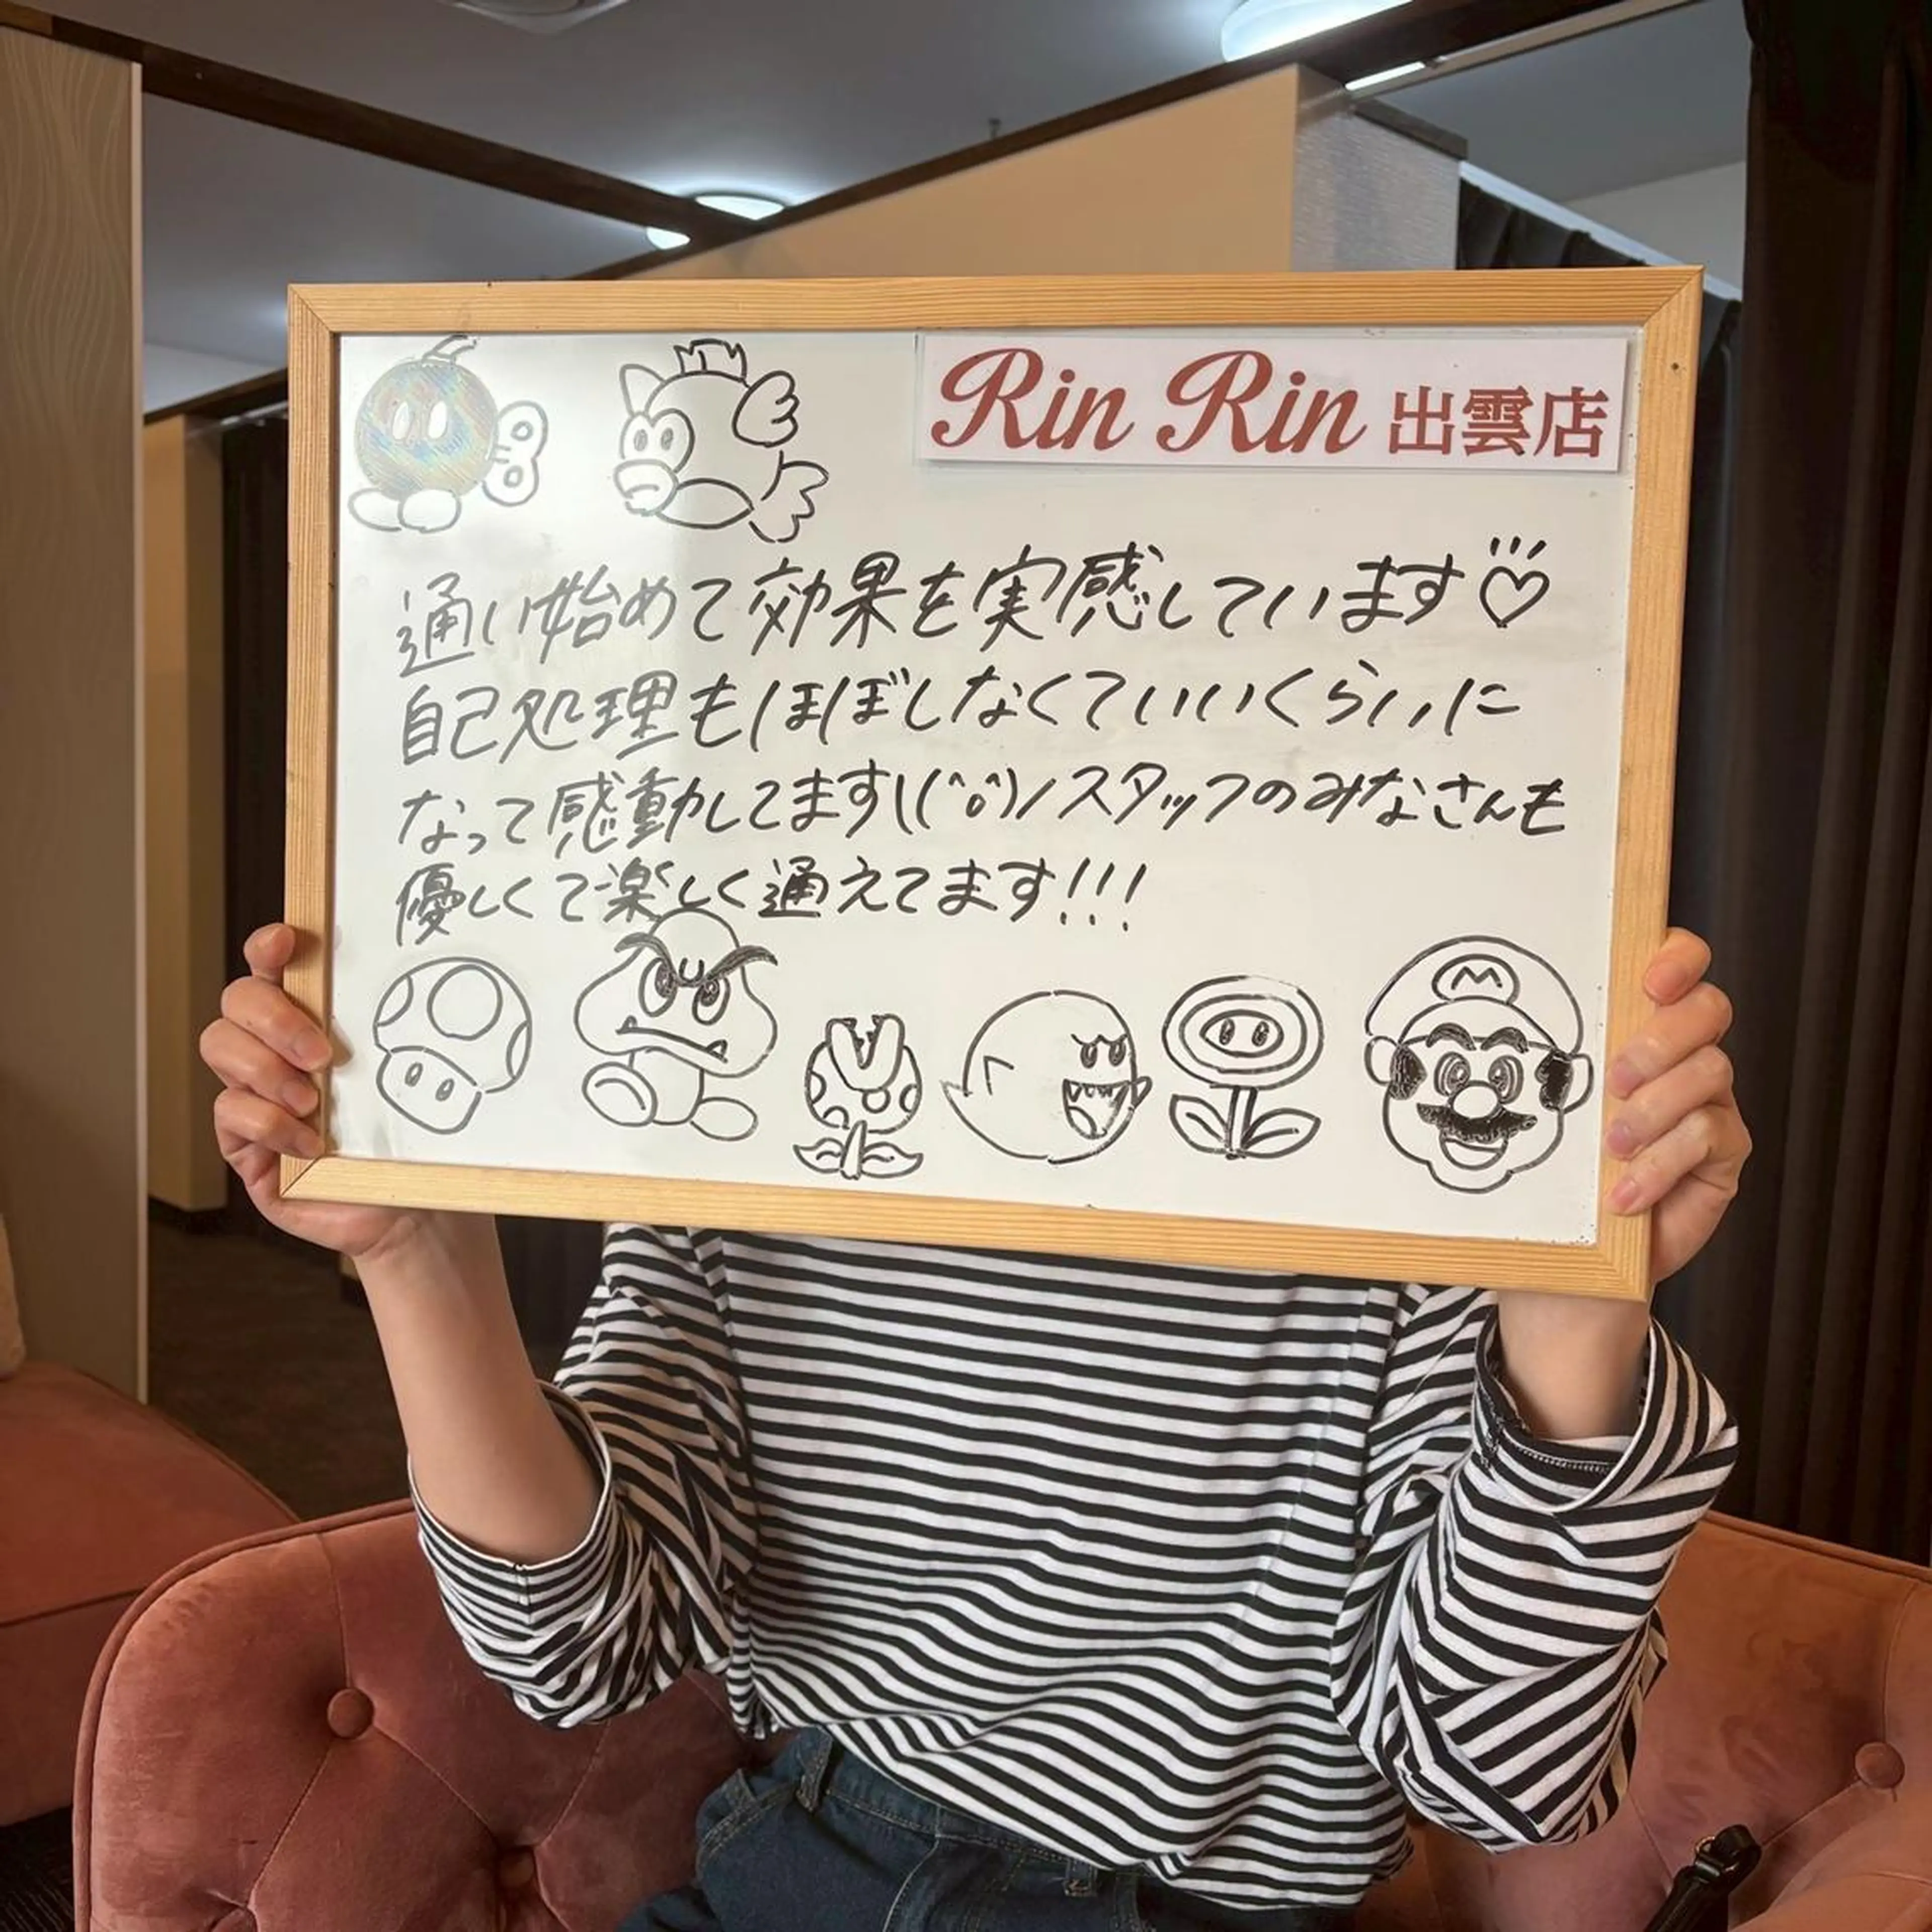 Rin Rin 出雲店
通い始めて効果を実感しています♡
自己処理もほぼしなくていいくらいに
なって感動してます\(^o^)/スタッフのみなさんも
優しくて楽しく通えてます!!!
M